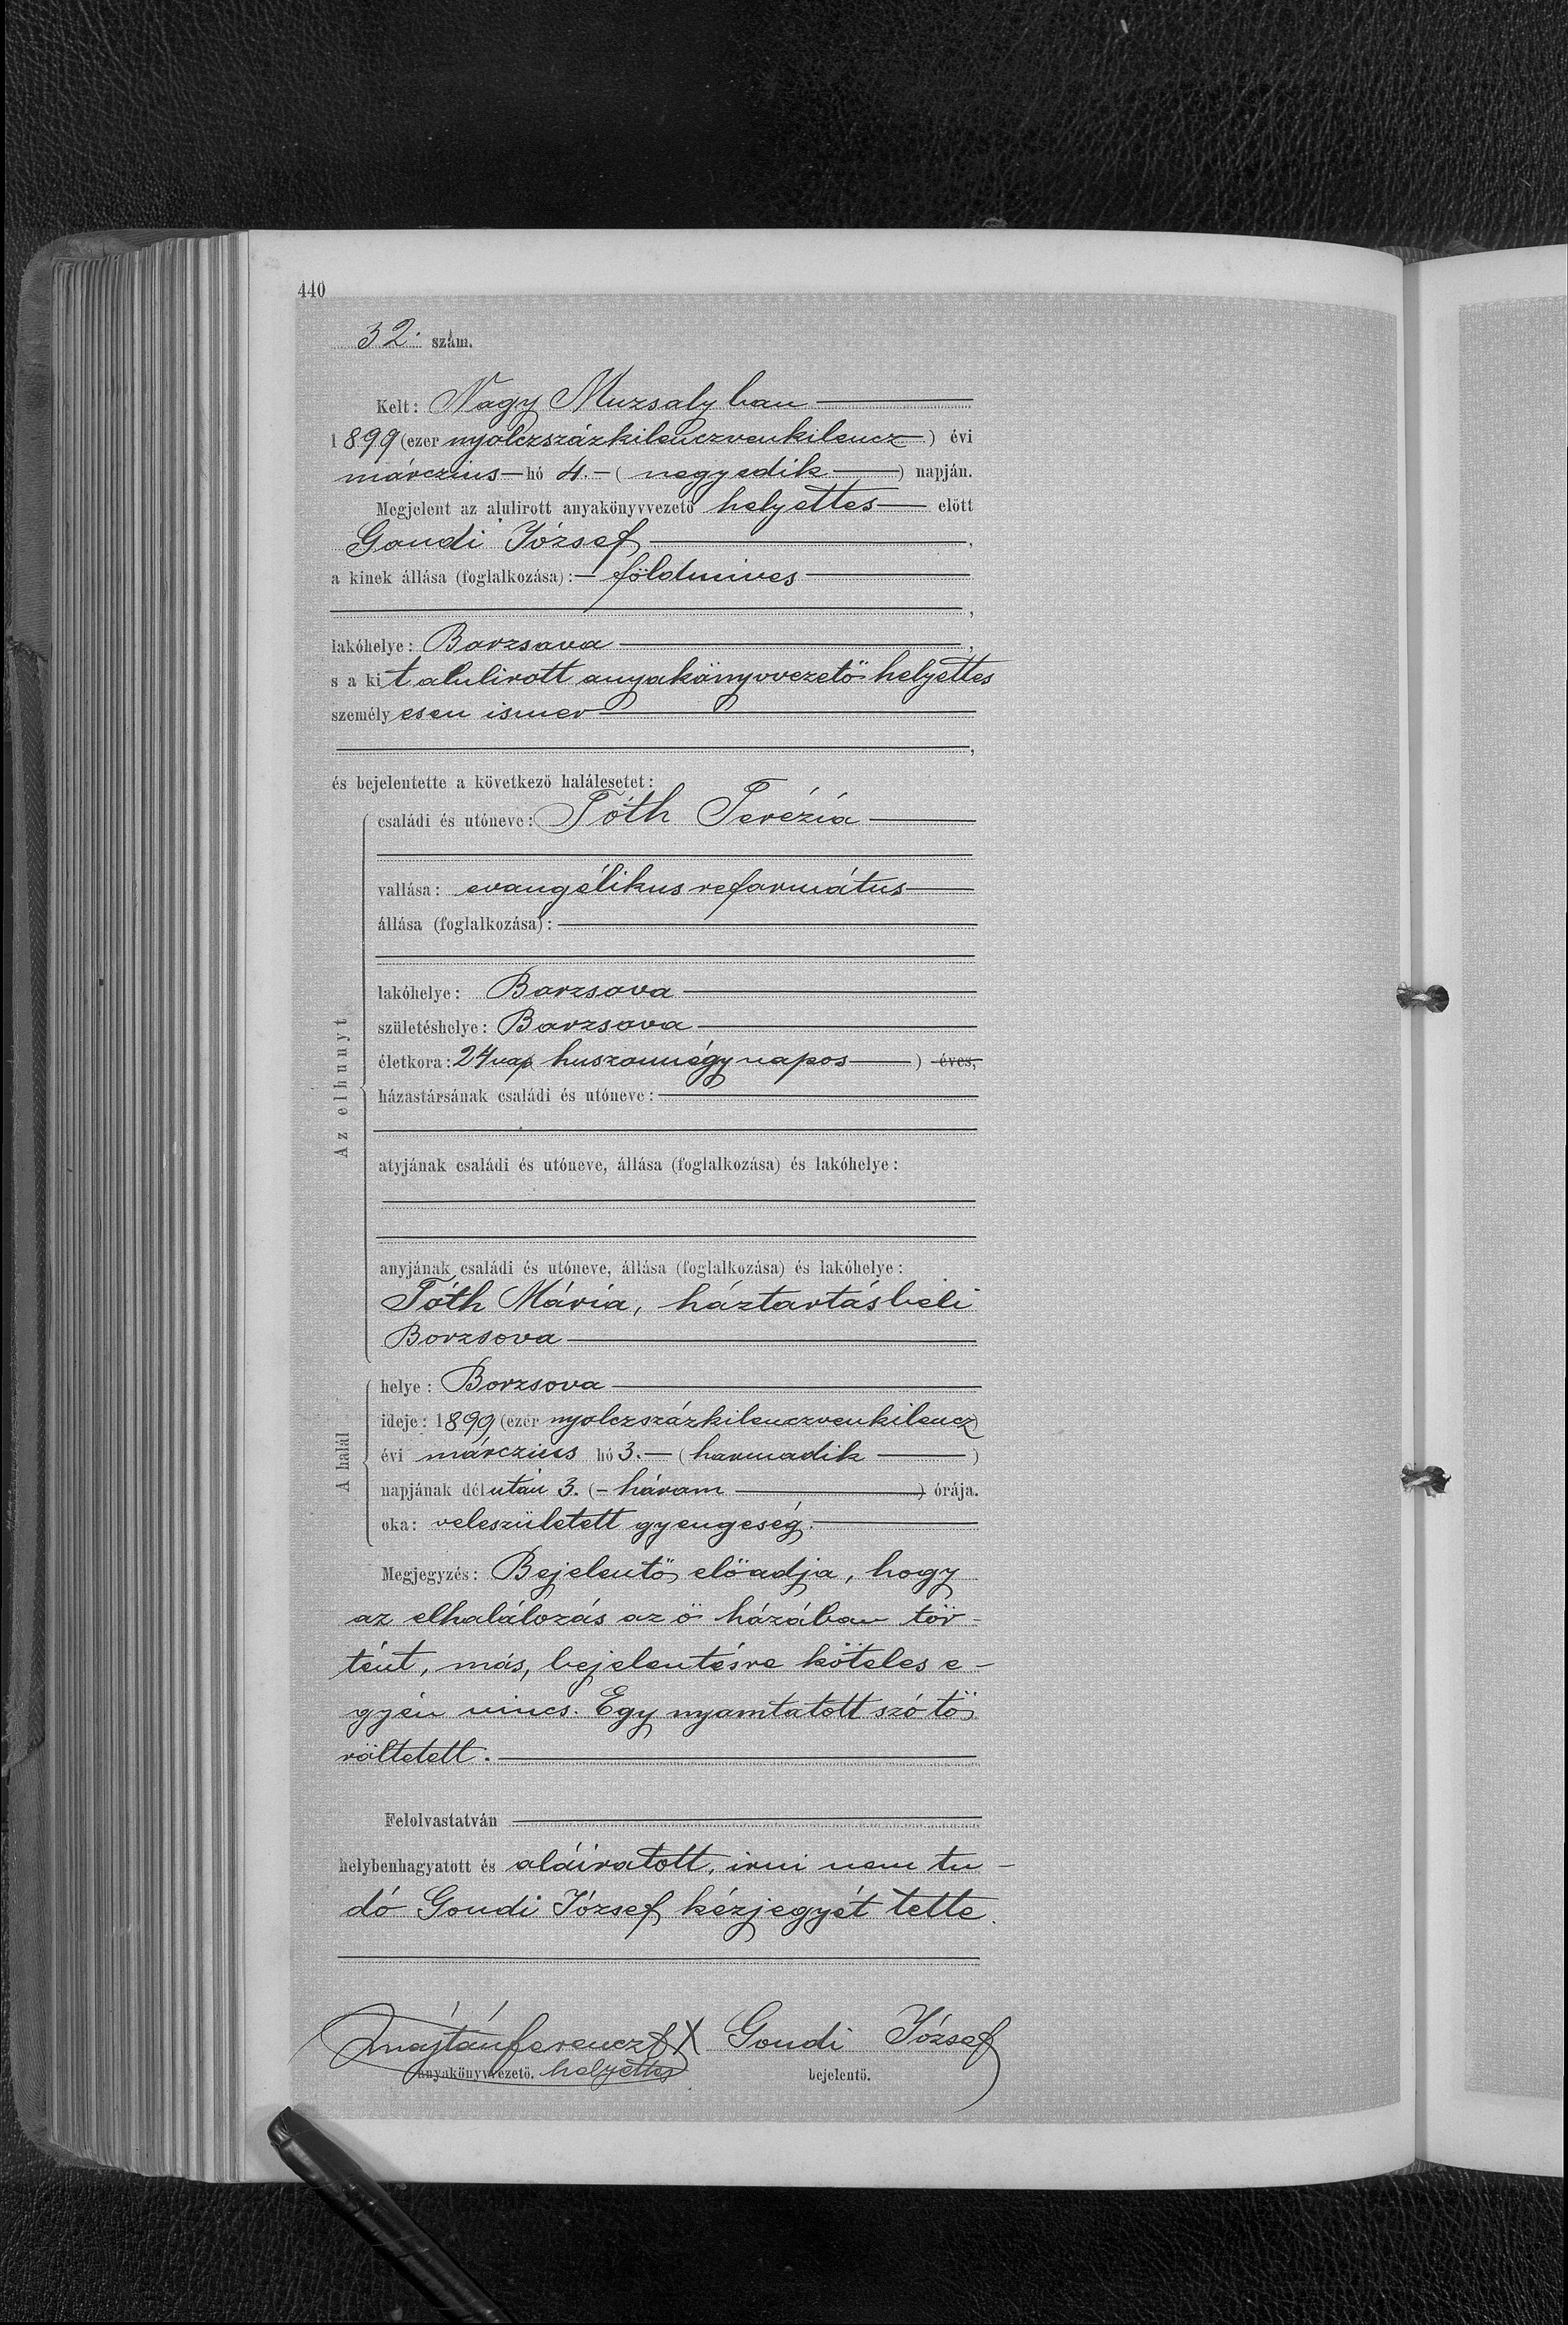 440
32. szám.
Kelt: Nagy Muzsalyban
1899 (ezer nyolczszázkilenczvenkilencz) évi
márczius hó 4. (negyedik) napján.
Megjelent az alulirott anyakönyvvezető helyettes előtt
Gondi József,
a kinek állása (foglalkozása): földmives
,
lakóhelye: Borzsova,
s a kit alulirott anyakönyvvezető helyettes
személyesen ismer
,
és bejelentette a következő halálesetet:
Az elhunyt
családi és utóneve: Tóth Terézia
vallása: evangélikus református
állása (foglalkozása):
lakóhelye: Borzsova
születéshelye: Borzsova
életkora: 24 nap huszonnégy napos ) éves,
házastársának családi és utóneve:
atyjának családi és utóneve, állása (foglalkozása) és lakóhelye:
anyjának családi és utóneve, állása (foglalkozása) és lakóhelye:
Tóth Mária, háztartásbeli
Borzsova
A halál
helye: Borzsova
ideje: 1899 (ezer nyolczszázkilenczvenkilencz)
évi márczius hó 3. (harmadik)
napjának délután 3. (három) órája.
oka: veleszületett gyengeség.
Megjegyzés: Bejelentő előadja, hogy
az elhalálozás az ő házában tör-
tént, más, bejelentésre köteles e-
gyén nincs. Egy nyomtatott szó tö
röltetett.
Felolvastatván
helybenhagyatott és aláiratott, irni nem tu-
dó Gondi József kézjegyét tette.
Majtánferencz X Gondi József
anyakönyvvezető. helyettes bejelentő.